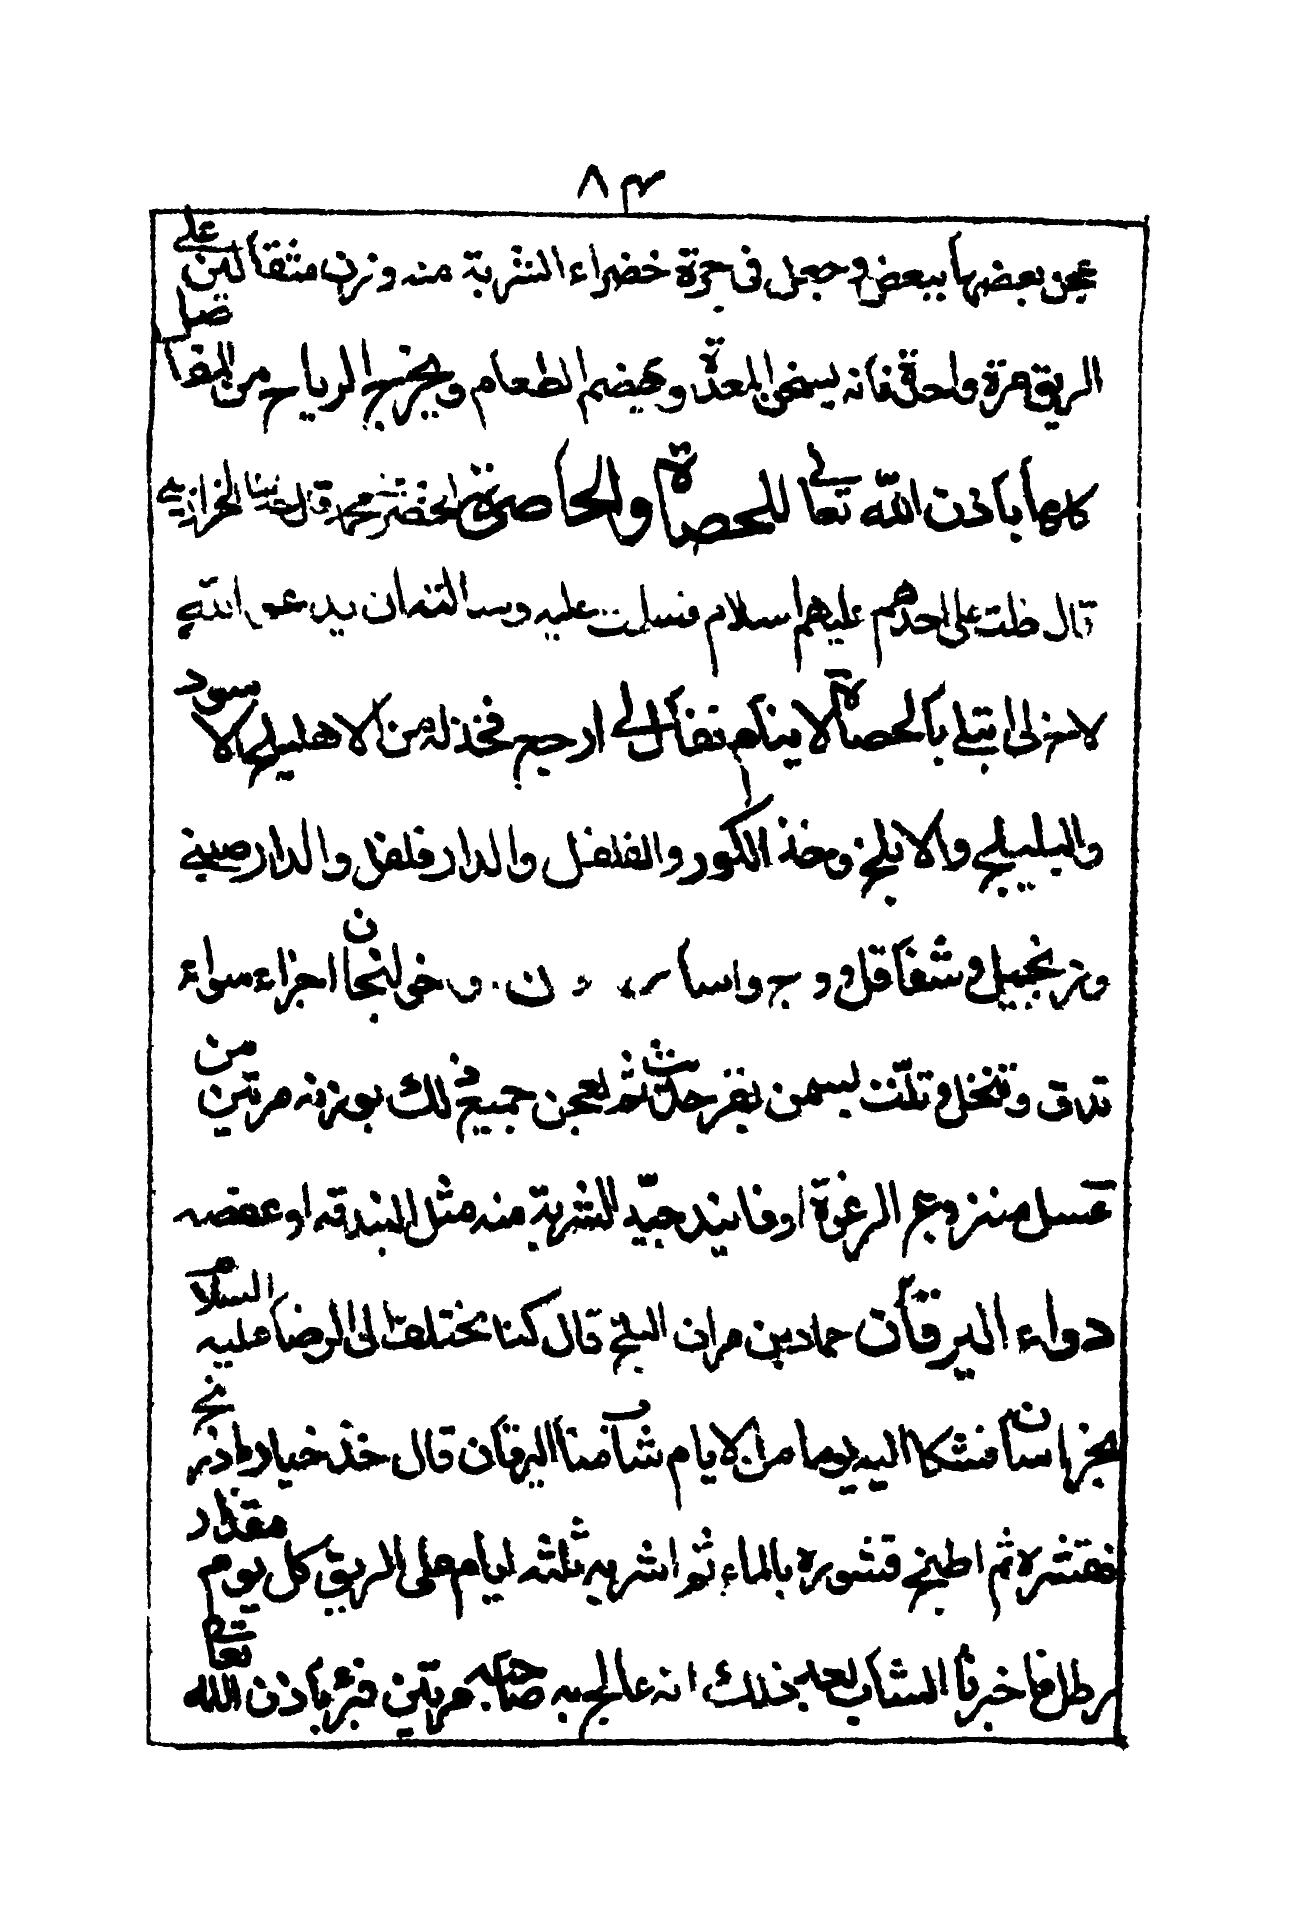 ٨٣
عجن بعضها ببعض وجعل في جرة خضراء الشربة منه وزن مثقالين على
الريق مرة واحدة فانه يسخن المعدة ويهضم الطعام ويخرج الرياح من المفاصل
كلها باذن الله تعالى للحصاة والخاصرة الخضر محمد قال حدثنا الخرازيني
قال دخلت على احدهم عليهم السلام فسلمت عليه وسالته ان يدعو الله
لاخ لي ابتلي بالحصاة لا ينام فقال لي ارجع فخذ له من الاهليلج الاسود
والبليلج والاملج وخذ الكور والفلفل والدار فلفل والدار صيني
وزنجبيل وشقاقل ووج واسا ن وخولنجان اجزاء سواء
تدق وتنخل وتلت بسمن بقر حديث ثم يعجن جميع ذلك بوزنه مرتين من
عسل منزوع الرغوة او فانيد جيد الشربة منه مثل البندقة او عفصه
دواء اليرقان حماد بن مهران البلخي قال كنا نختلف الى الرضا عليه السلام
بخراسان فشكا اليه يوما من الايام شاب منا اليرقان قال خذ خيار باذرنج
فقشره ثم اطبخ قشوره بالماء ثم اشربه ثلثه ايام على الريق كل يوم مقدار
رطل فاخبرنا الشاب بعد ذلك انه عالج به صاحبه مرتين فبرئ باذن الله تعالى